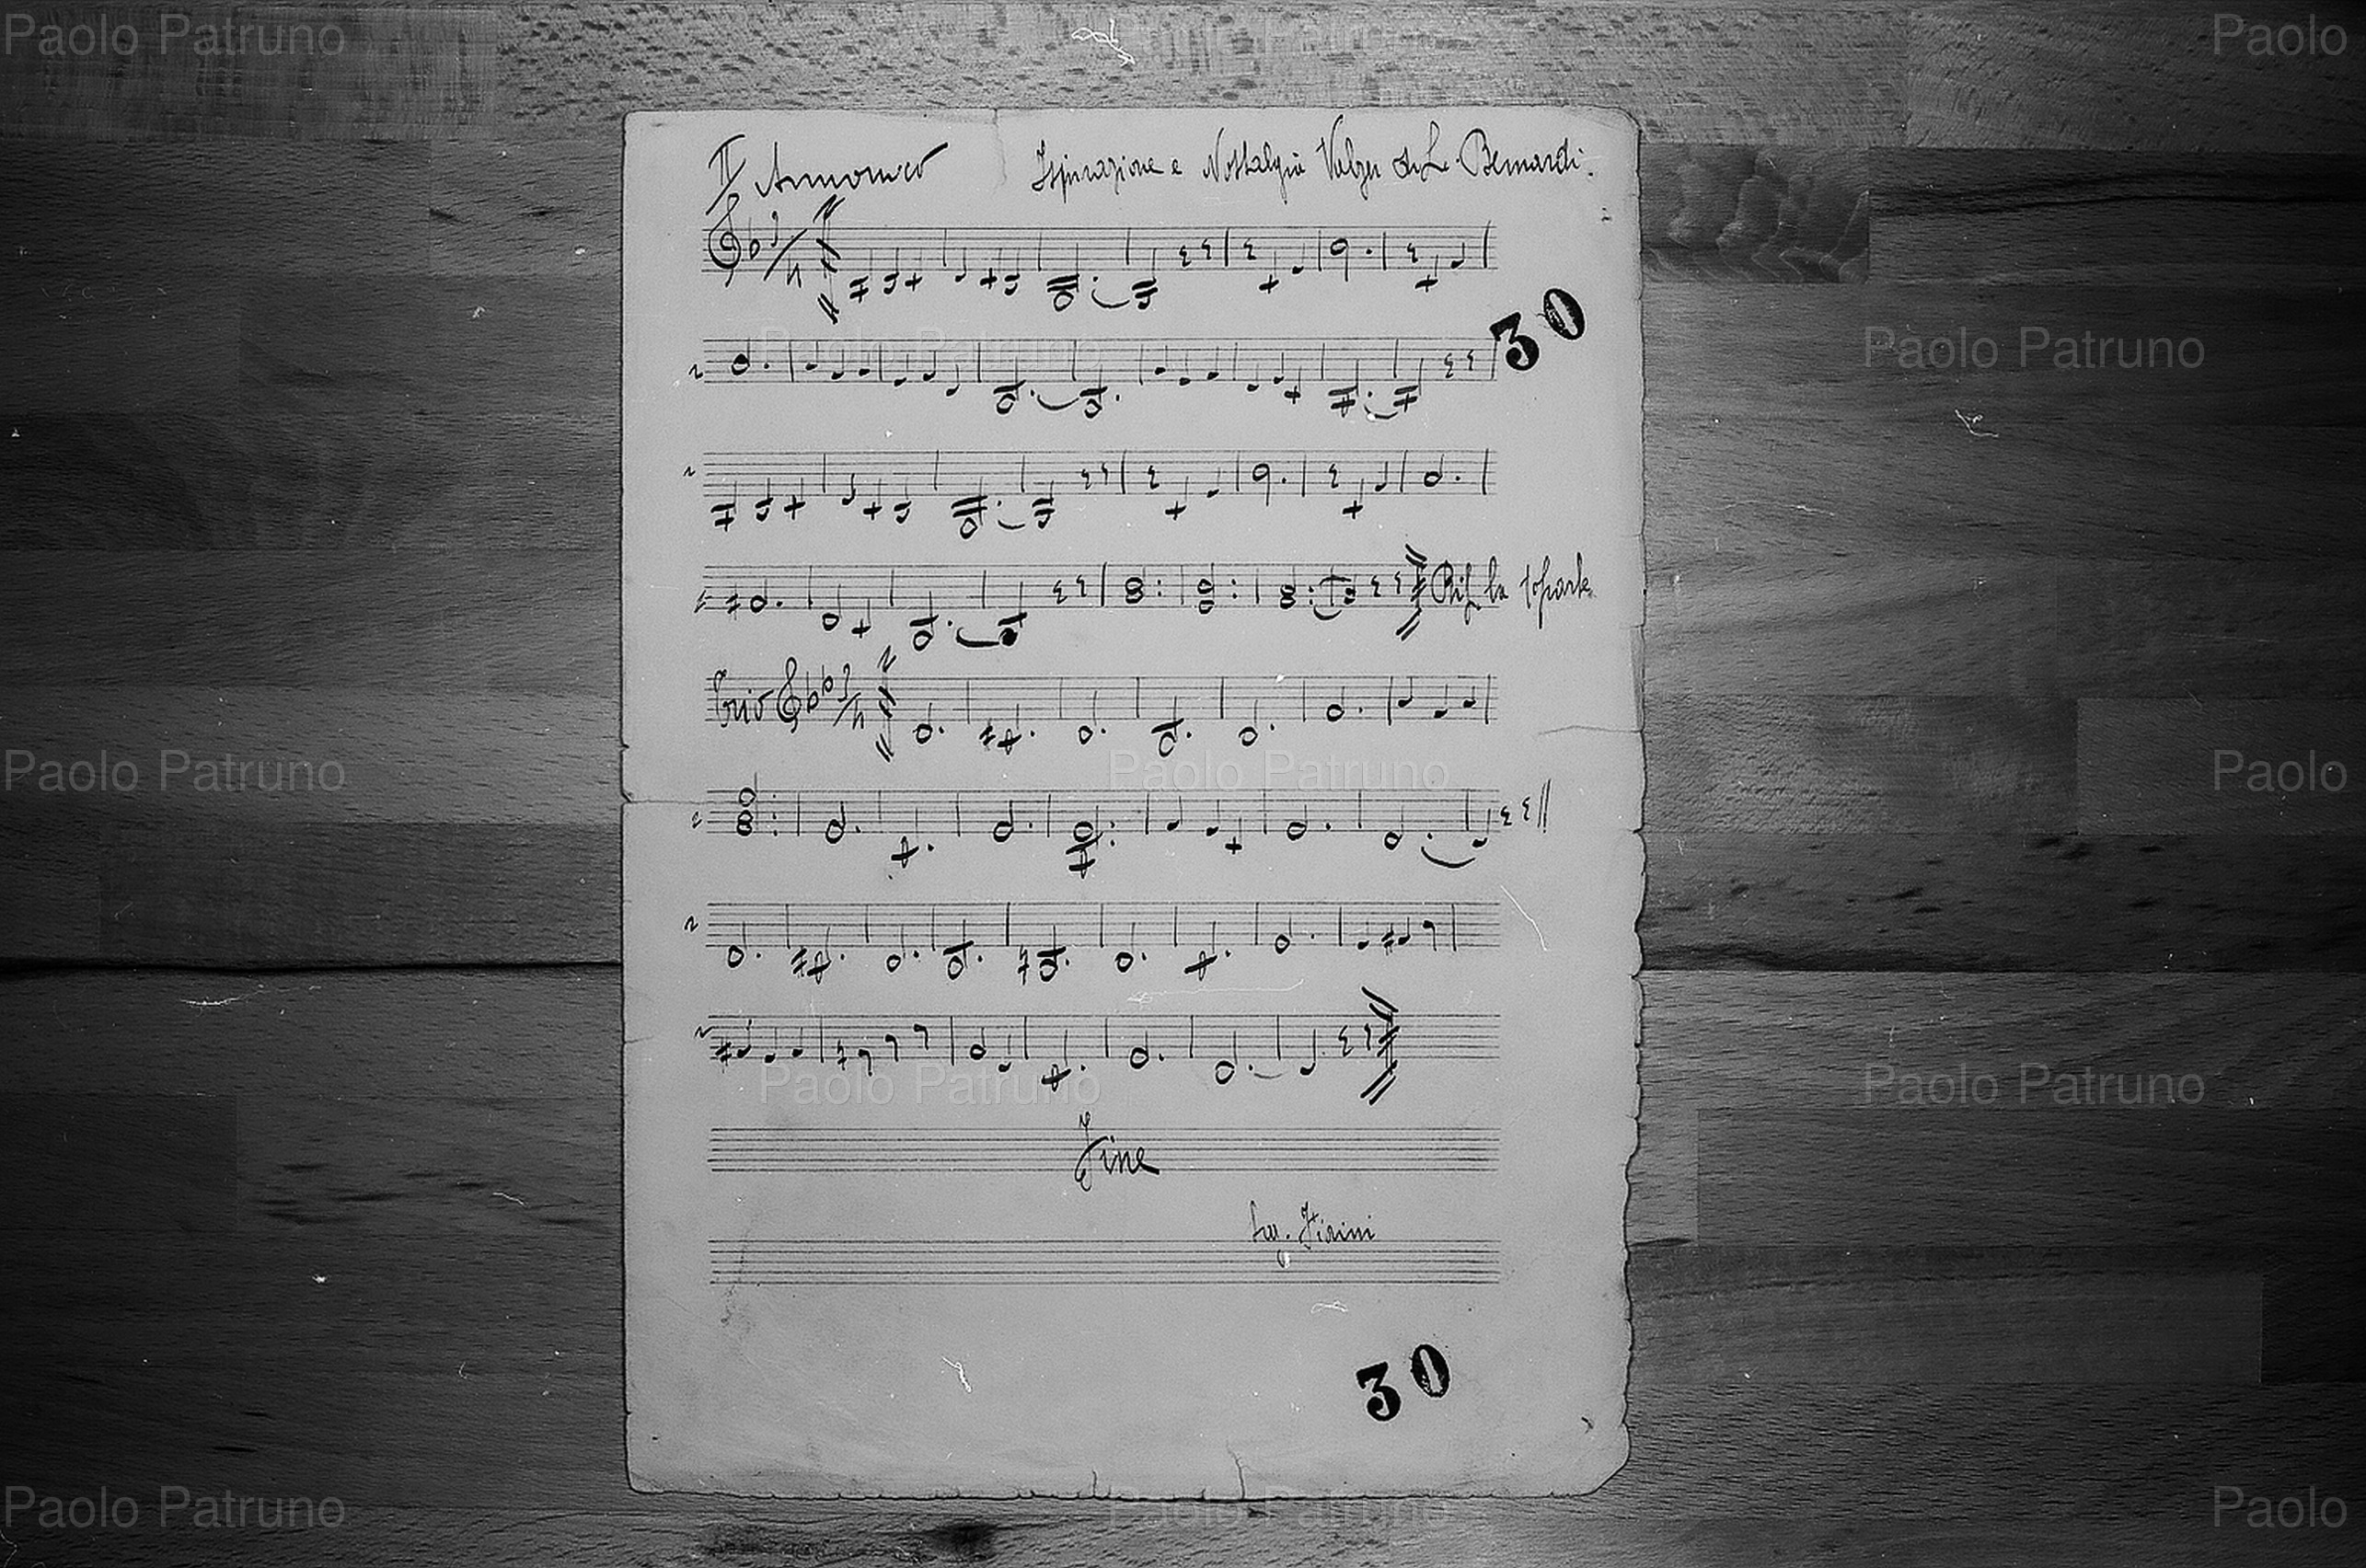 Paolo Patruno Paolo Patruno Paolo
II Armonico Ispirazione e Nostalgia Valzer di L. Bernardi.
3/4
30
Paolo Patruno Paolo Patruno
Rip. la 1ª parte
Trio 3/4
Paolo Patruno Paolo Patruno Paolo
Paolo Patruno Paolo Patruno
Fine
Lug. Fiorini
30
Paolo Patruno Paolo Patruno Paolo